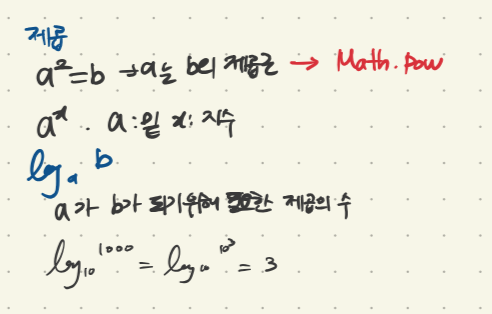 제곱
a²=b → a는 b의 제곱근 → Math.pow
aˣ . a:밑 x: 지수
logₐ b
a가 b가 되기위해 필요한 제곱의 수
log₁₀ 1000 = log₁₀ 10³ = 3